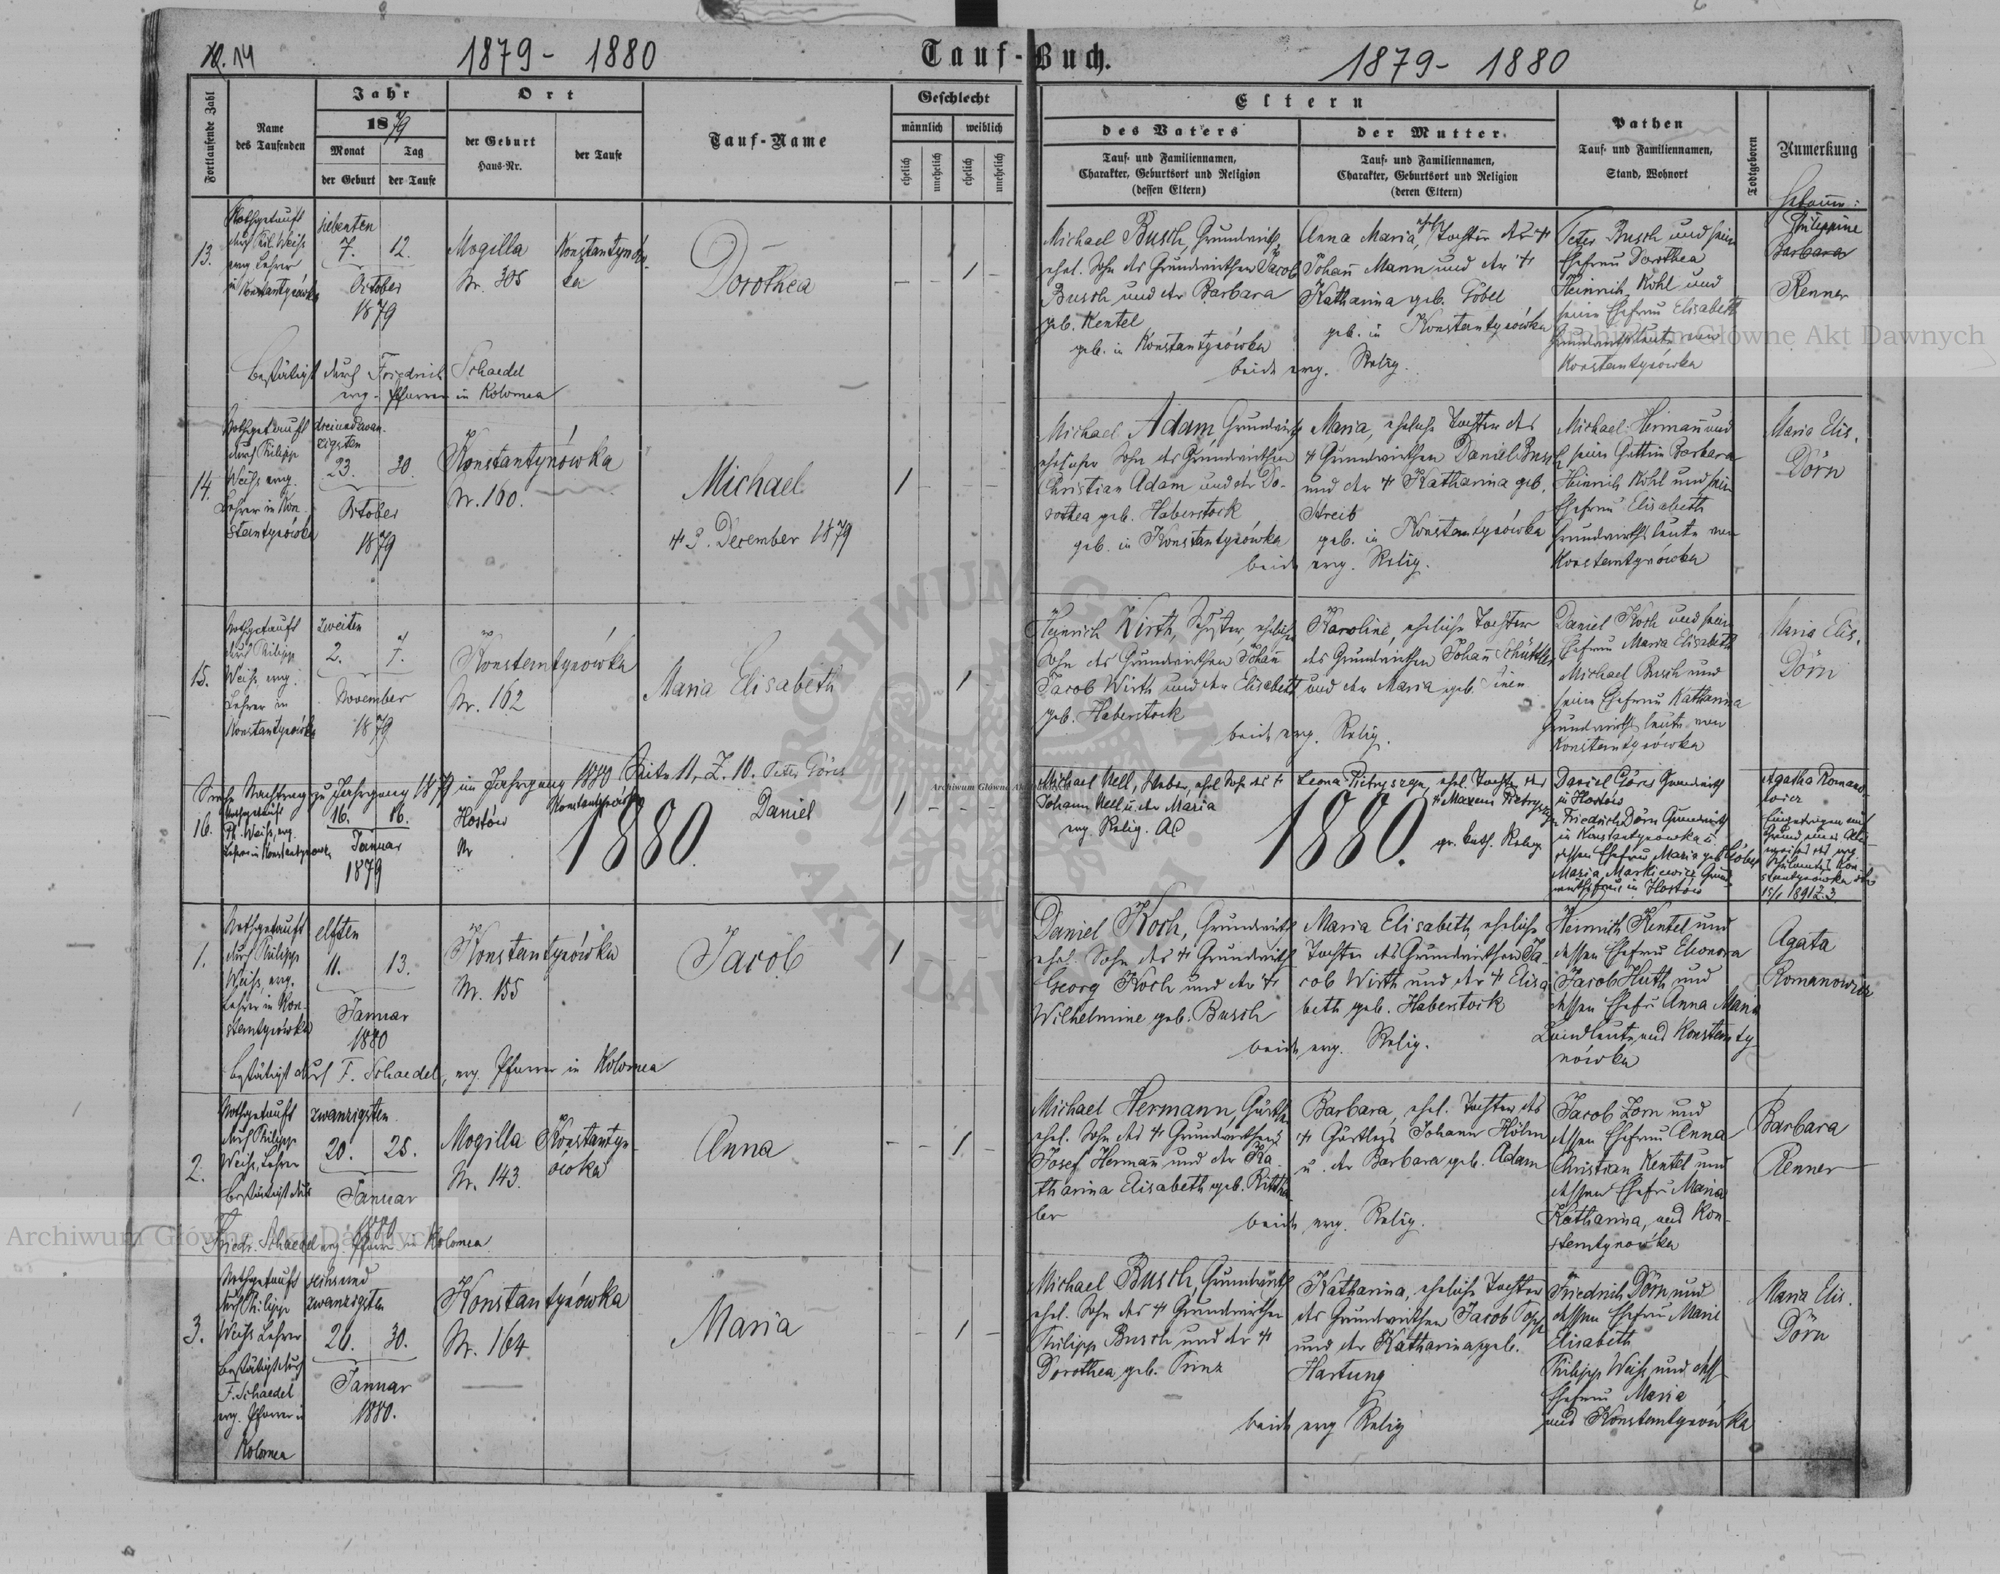 14
1879 - 1880
Tauf-Buch.
1879 - 1880
Fortlaufende Zahl
Name
des Taufenden
Jahr
1879
Monat
Tag
der Geburt
der Taufe
Ort
der Geburt
Haus-Nr.
der Taufe
Tauf-Name
Geschlecht
männlich
weiblich
ehelich
unehelich
ehelich
unehelich
Eltern
des Vaters
Tauf- und Familiennamen,
Charakter, Geburtsort und Religion
(dessen Eltern)
der Mutter
Tauf- und Familiennamen,
Charakter, Geburtsort und Religion
(deren Eltern)
Pathen
Tauf- und Familiennamen,
Stand, Wohnort
Todtgeboren
Anmerkung
Hebamme:
13.
Nothgetauft
evg. Lehrer
in Konstantynówka
siebenten
7. 12.
October
1879
Mogilla
Nr. 305
Dorothea
1
Michael Busch, Grundwirth,
ehel. Sohn des Grundwirthen Jacob
Busch und der Barbara
geb. Kentel
geb. in Konstantynówka
Anna Maria, Tochter der
Johann Mann und der
Katharina geb. Göbel
geb. in Konstantynówka
beide evg. Relig.
Peter Busch und seine
Ehefrau Dorothea
Heinrich Kohl und
seine Ehefrau Elisabeth
Grundwirthsleute von
Konstantynówka
Philippine
Barbara
Renner
Bestätigt durch Friedrich Schaedel
evg. Pfarrer in Kolomea
14.
Nothgetauft
durch Philipp
Weiss, evg.
Lehrer in Kon-
stantynówka
dreiundzwan-
zigsten
23. 30.
October
1879
Konstantynówka
Nr. 160.
Michael
3. December 1879
1
Michael Adam Grundwirth
ehelicher Sohn des Grundwirthen
Christian Adam und der Do-
rothea geb. Haberstock
geb. in Konstantynówka
Maria, eheliche Tochter des
Grundwirthen Daniel Busch
und der Katharina geb.
Streib
geb. in Konstantynówka
beide evg. Relig.
Michael Hermann und
seine Gattin Barbara
Heinrich Kohl und seine
Ehefrau Elisabeth
Grundwirthsleute von
Konstantynówka
Maria Elis.
Dörn
15.
Nothgetauft
durch Philipp
Weiss, evg.
Lehrer in
Konstantynówka
zweiten
2. 7.
November
1879
Konstantynówka
Nr. 162
Maria Elisabeth
1
Heinrich Wirth, ehelicher
Sohn des Grundwirthen Johann
Jacob Wirth und der Elisabeth
geb. Haberstock
Karoline, eheliche Tochter
des Grundwirthen Johann
und der Maria geb.
beide evg. Relig.
Daniel Koch und seine
Ehefrau Maria Elisabeth
Michael Busch und
seine Ehefrau Katharina
Grundwirthsleute von
Konstantynówka
Maria Elis.
Dörn
Siehe Nachtrag zu Jahrgang 1879 im Jahrgang 1880 Seite 11, Z. 10. Peter Göres
16.
Nothgetauft
Ph. Weiss, evg.
Lehrer in Konstantynowka
16. 16.
Januar
1879
Hostów
Nr
Konstantynówka
Daniel
1
Michael Nell, Weber, ehel. Sohn des
Johann Nell u. der Maria
evg. Relig. AC
Leona Pietryszyn, ehel. Tochter des
gr. kath. Relig.
Daniel Göris Grundwirth
in Hostów
Friedrich Dörn Grundwirth
in Konstantynowka u.
dessen Ehefrau Maria geb. Göbel
Maria Markiewicz
in Hostów
Agatha Romano-
wicz
Eingetragen auf
1880
1880.
1.
Nothgetauft
durch Philipp
Weiss, evg.
Lehrer in Kon-
stantynówka
elften
11. 13.
Januar
1880
Konstantynówka
Nr. 155
Jacob
1
Daniel Koch, Grundwirth
ehel. Sohn des Grundwirth
Georg Koch und der
Wilhelmine geb. Busch
Maria Elisabeth eheliche
Tochter des Grundwirthen Ja-
cob Wirth und der Elisa-
beth geb. Haberstock
beide evg. Relig.
Heinrich Kentel und
dessen Ehefrau Eleonora
Jacob Huth und
dessen Ehefr. Anna Maria
Landleute aus Konstanty-
nówka
Agata
Romanowicz
Bestätigt durch F. Schaedel, evg. Pfarrer in Kolomea
2.
Nothgetauft
durch Philipp
Weiss, Lehrer
Bestätigt durch
Friedr. Schaedel evg. Pfarrer in Kolomea
zwanzigsten
20. 25.
Januar
1880
Mogilla
Nr. 143.
Konstantyn-
ówka
Anna
1
Michael Hermann, Gärtler
ehel. Sohn des Grundwirthen
Josef Hermann und der Ka-
tharina Elisabeth geb.
Barbara, ehel. Tochter des
Gärtlers Johann
u. der Barbara geb. Adam
beide evg. Relig.
Jacob Zorn und
dessen Ehefrau Anna
Christian Kentel und
dessen Ehefr. Maria
Katharina, aus Kon-
stantynowka
Barbara
Renner
3.
Nothgetauft
durch Philipp
Weiss Lehrer
Bestätigt durch
F. Schaedel
evg. Pfarrer in
Kolomea
sechsund
zwanzigsten
26. 30.
Januar
1880.
Konstantynówka
Nr. 164
Maria
1
Michael Busch, Grundwirth
ehel. Sohn des Grundwirthen
Philipp Busch und der
Dorothea geb. Prinz
Katharina, eheliche Tochter
des Grundwirthen Jacob Popp
und der Katharina geb.
Hartung
beide evg Relig
Friedrich Dörn und
dessen Ehefrau Maria
Elisabeth
Philipp Weiss und dess.
Ehefrau Maria
aus Konstantynówka
Maria Elis.
Dörn
Archiwum Główne Akt Dawnych
Archiwum Główne Akt Dawnych
Archiwum Główne Akt Dawnych